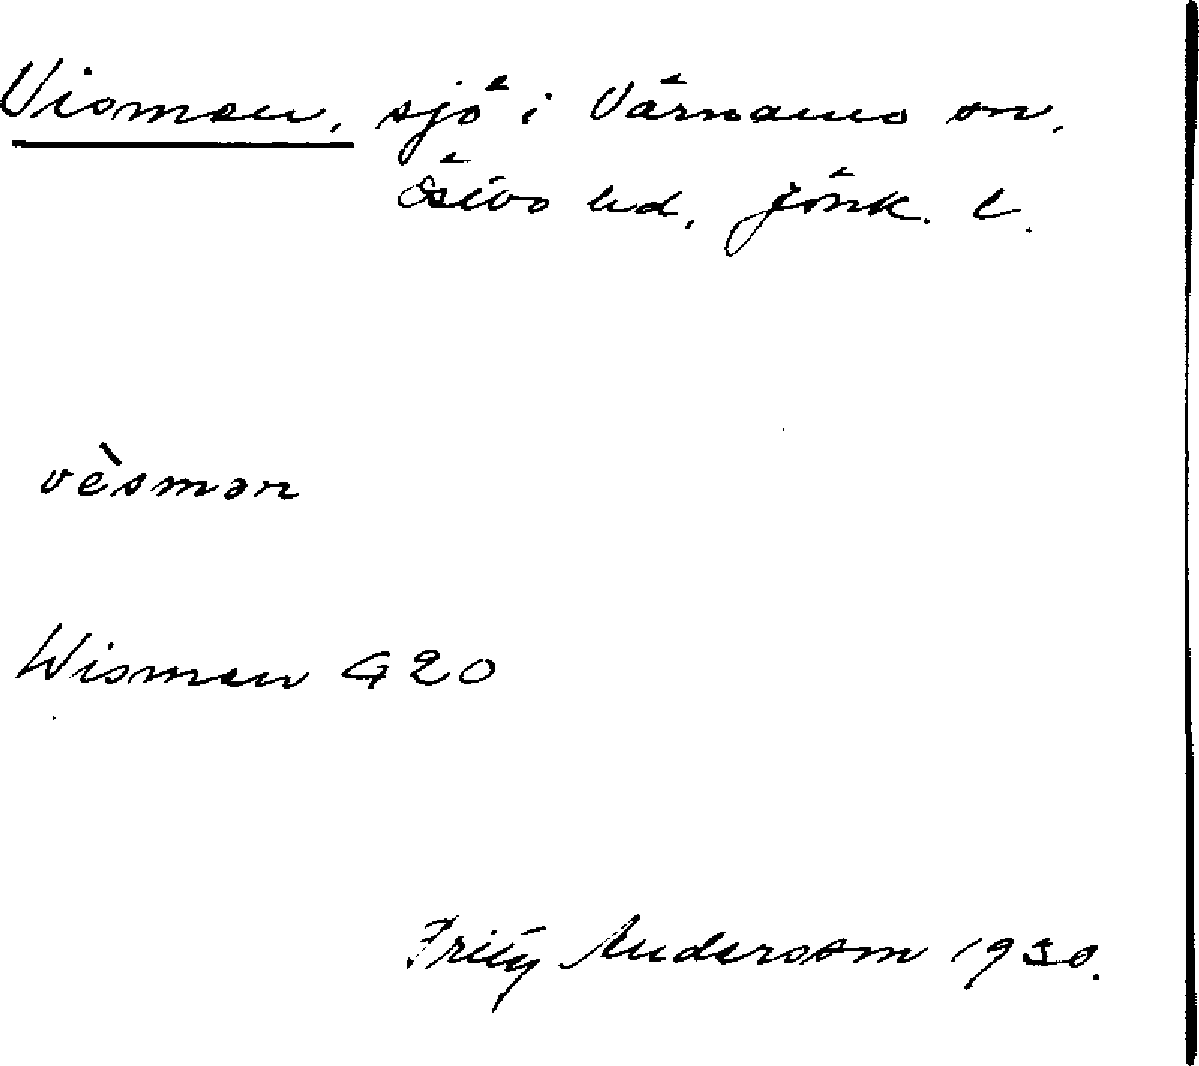 Visman, sjö i Värnamo sn.
Östbo hd, Jönk. l.
vèsmən
Wisman G20
Fritz Andersson 1930.